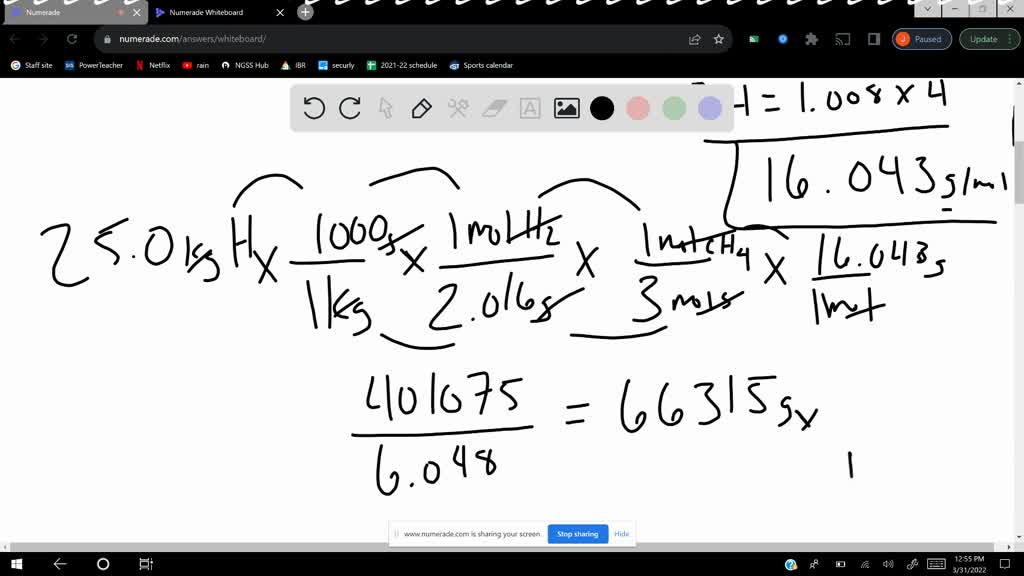 Numerade
Numerade Whiteboard
numerade.com/answers/whiteboard/
J Paused
Update
Staff site
PowerTeacher
Netflix
rain
NGSS Hub
IBR
securly
2021-22 schedule
Sports calendar
H = 1.008 x 4
16.043 g/mol
25.0 kg H x 1000g x 1 mol H2 x 1 mol CH4 x 16.043g
1kg 2.016g 3 mols 1mol
401075 = 66315 g x
6.048
1
www.numerade.com is sharing your screen.
Stop sharing
Hide
12:55 PM
3/31/2022